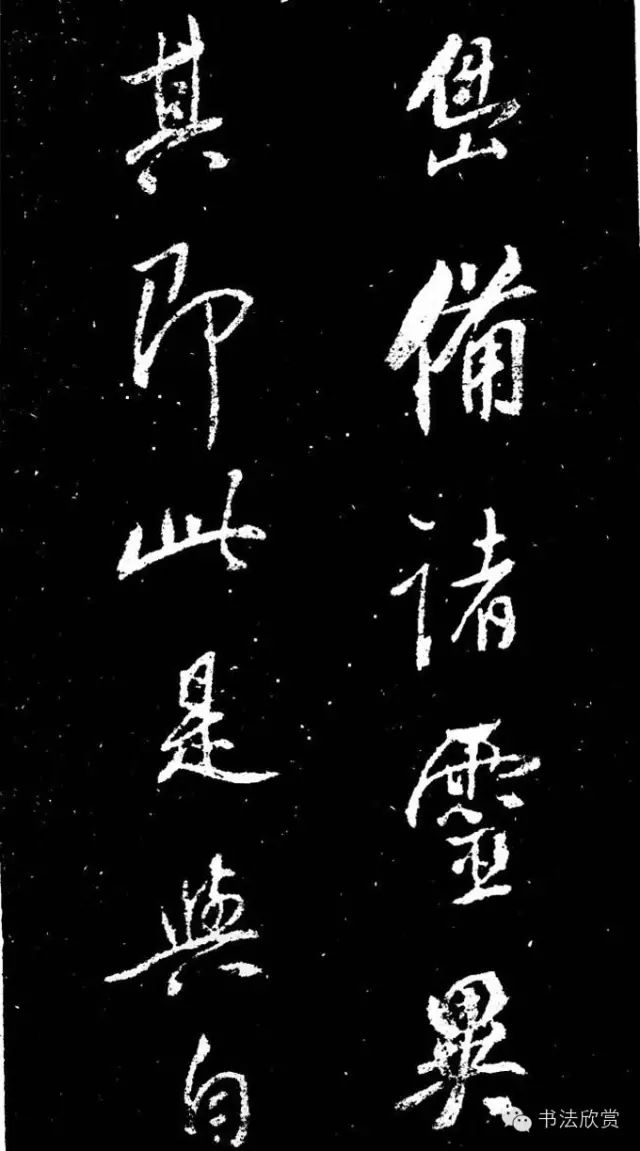 備諸靈異
其即此是與自
书法欣赏